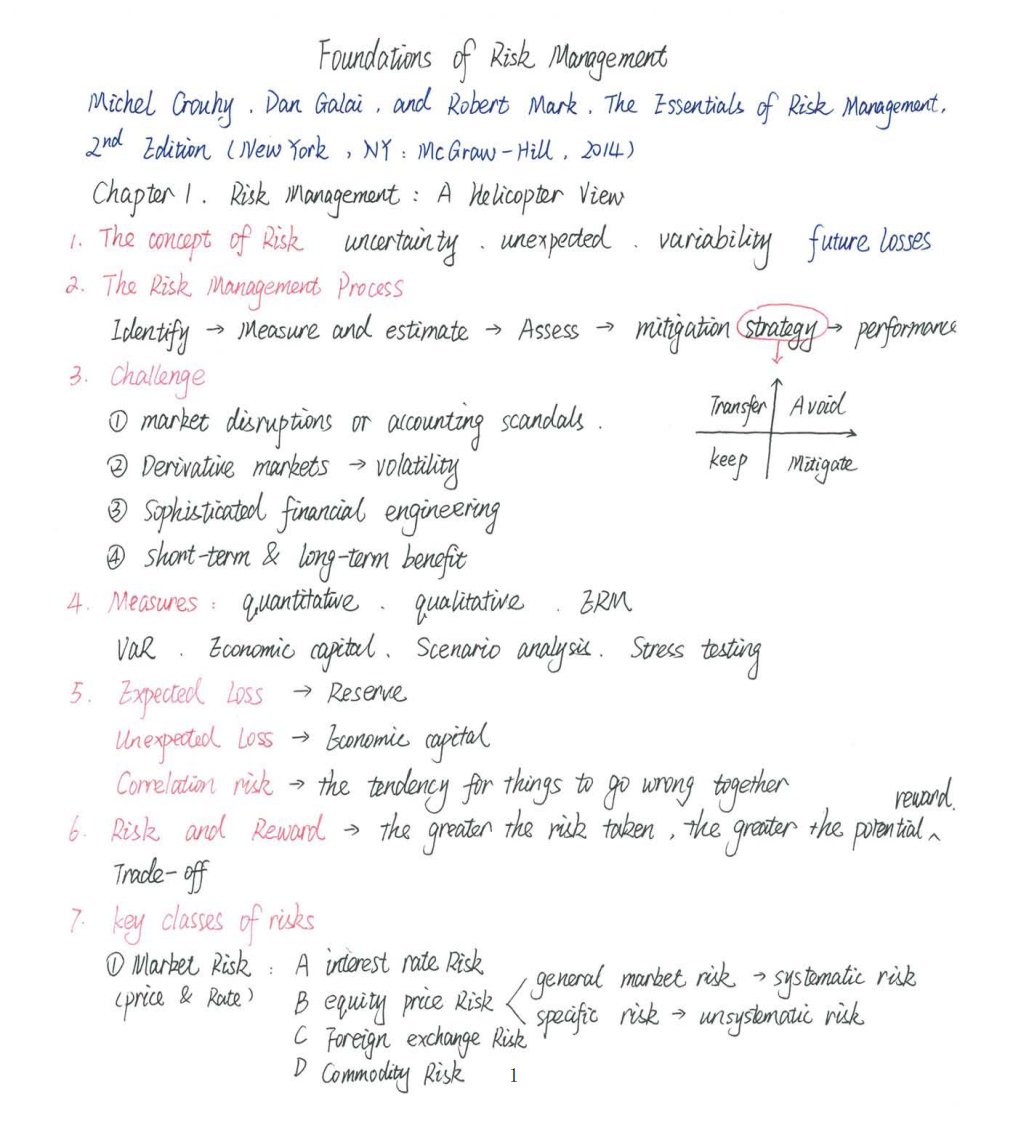 Foundations of Risk Management
Michel Crouhy, Dan Galai, and Robert Mark. The Essentials of Risk Management,
2nd Edition (New York, NY: McGraw-Hill, 2014)
Chapter 1. Risk Management: A Helicopter View
1. The concept of Risk uncertainty. unexpected. variability future losses
2. The Risk Management Process
Identify → Measure and estimate → Assess → mitigation strategy → performance
3. Challenge
① market disruptions or accounting scandals.
Transfer Avoid
② Derivative markets → volatility
keep Mitigate
③ Sophisticated financial engineering
④ short-term & long-term benefit
4. Measures: quantitative. qualitative. ERM
VaR. Economic capital. Scenario analysis. Stress testing
5. Expected Loss → Reserve
Unexpected Loss → Economic capital
Correlation risk → the tendency for things to go wrong together
6. Risk and Reward → the greater the risk taken, the greater the potential ^ reward.
Trade-off
7. key classes of risks
① Market Risk: A interest rate Risk
(price & Rate) B equity price Risk < general market risk → systematic risk
specific risk → unsystematic risk
C Foreign exchange Risk
D Commodity Risk
1